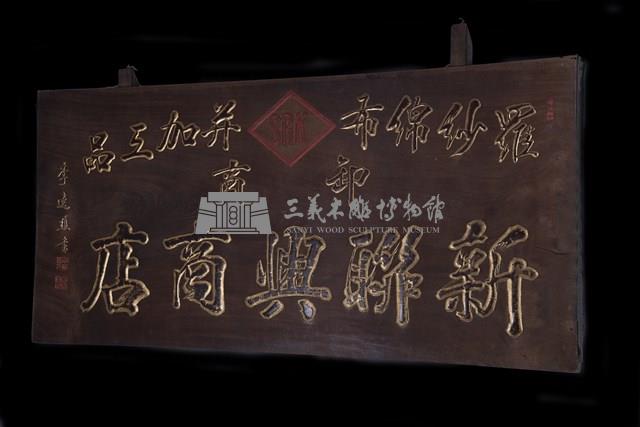 羅紗綿布 并加工品
卸商
新聯興商店
三義木雕博物館
SANYI WOOD SCULPTURE MUSEUM